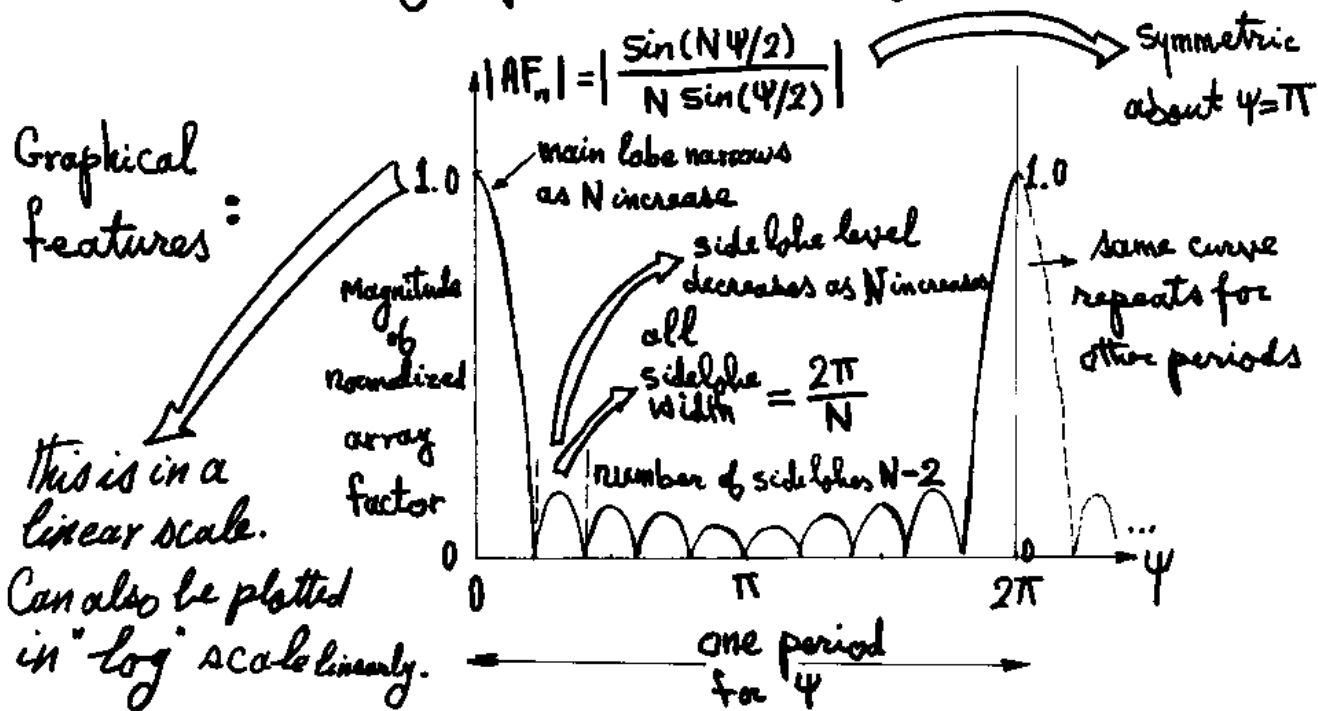 |AFₙ| = | Sin(NΨ/2) / N Sin(Ψ/2) |
Symmetric
about Ψ=π
Graphical
features :
1.0
main lobe narrows
as N increase
1.0
side lobe level
decreases as N increases
same curve
repeats for
other periods
Magnitude
of
Normalized
array
factor
all
sidelobe
width = 2π/N
number of sidelobes N-2
This is in a
linear scale.
Can also be plotted
in "log" scale linearly.
0
0
...
Ψ
0
π
2π
one period
for Ψ